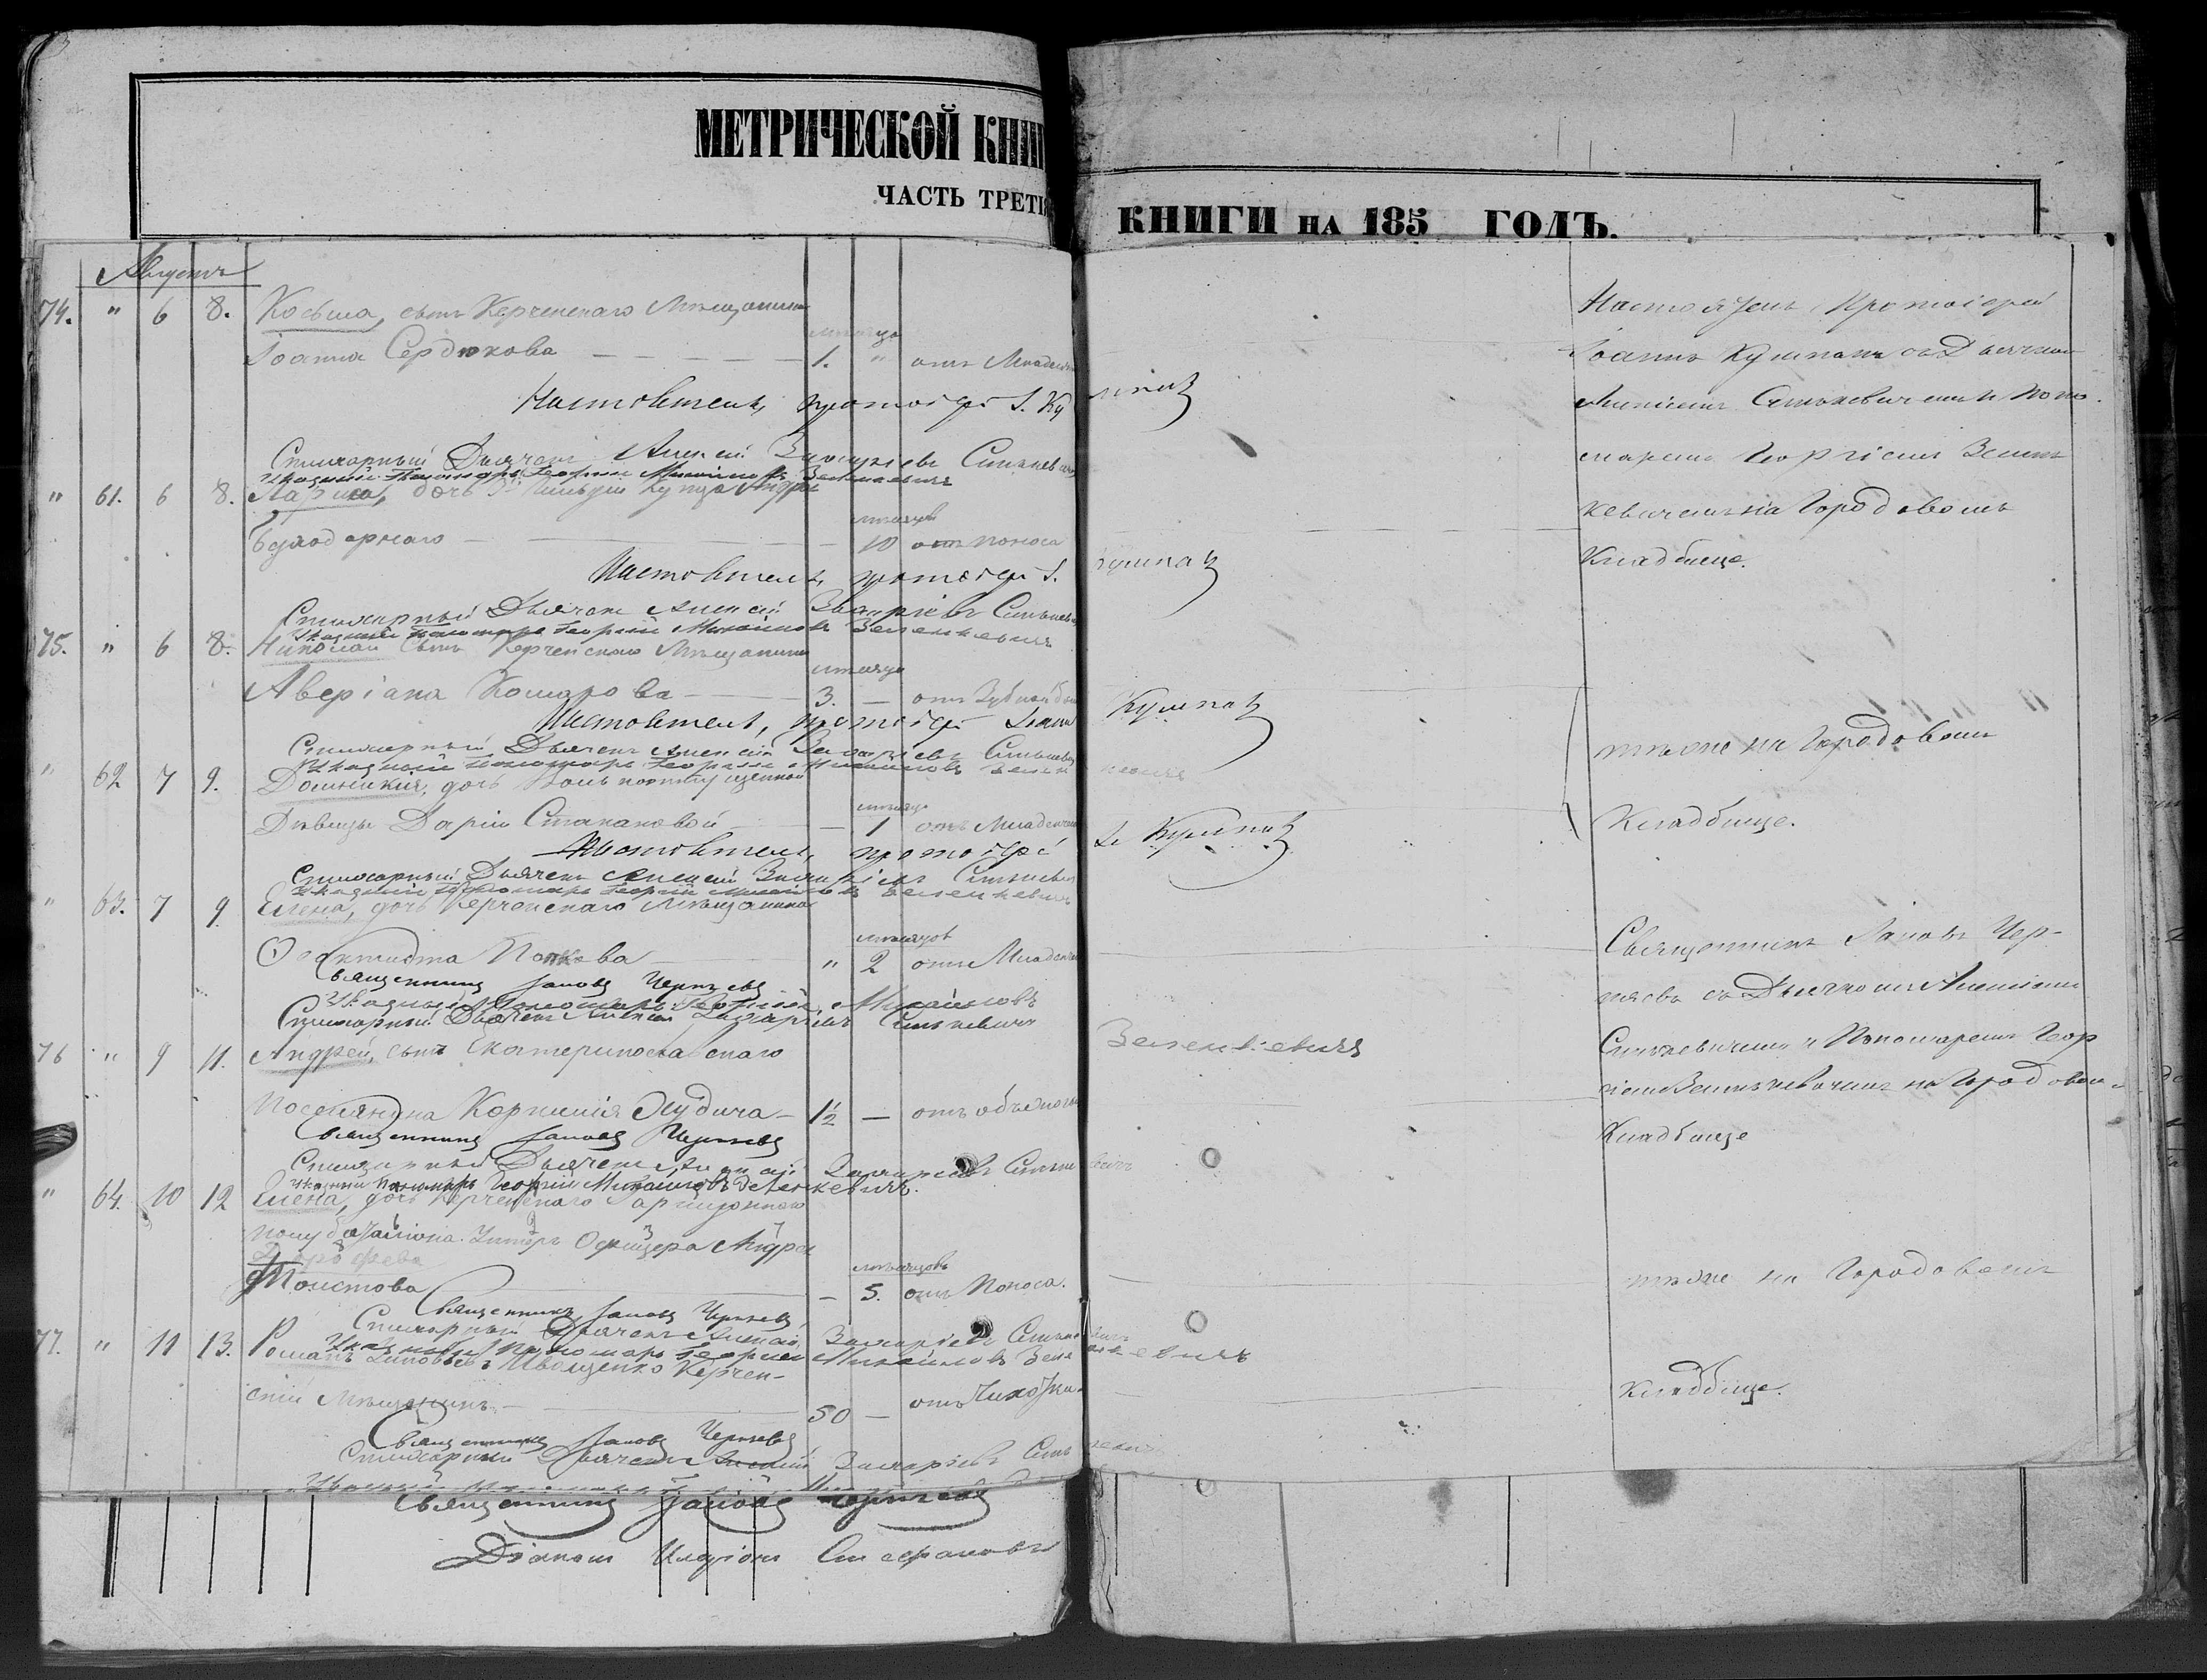 МЕТРИЧЕСКОЙ КНИГ
ЧАСТЬ ТРЕТІЯ
КНИГИ НА 185 ГОДЪ.
Августъ
74. " 6 8. Косьма, сынъ Керченскаго Мѣщанина
мѣсяцъ
Іоанна Сердюкова 1. " отъ Младенч
Настоятель, протоіерей І. Ку
мпанъ
Стихарный Дьячекъ Алексій Захаріевъ Сти
Указный Пономарь Георгій Михайловъ Зеленкевичъ
" 61. 6 8. Лариса, дочь 3й Гильдіи Купца Андрея
мѣсяцовъ
10 отъ поноса
Настоятель, протоіерей І.
Кумпанъ
Стихарный Дьячекъ Алексій Захаріевъ
Указный Пономарь Георгій Михайловъ Зеленкевичъ
75. " 6 8. Николай Сынъ Керченскаго Мѣщанина
мѣсяца
Аверіана Комарова 3. — отъ Зубной
Настоятель, протоіерей Іоаннъ
Кумпанъ
Стихарный Дьячекъ Алексій Захаріевъ
Указный пономарь Георгій Михайловъ Зелен
кевичъ
" 62 7 9. Домникія, дочь Вольноотпущенной
мѣсяцъ
Дѣвицы Даріи Стакановой — 1 отъ Младенч
Настоятель, протоіерей
І. Кумпанъ
Стихарный Дьячекъ Алексій Захаріевъ
Указный Пономарь Георгій Михайловъ Зеленкевичъ
" 63. 7 9. Елена, дочь Керченскаго Мѣщанина
мѣсяцов
Ѳеоктиста Попова " 2 отъ Младенч
Священникъ Іаковъ Черняевъ
Указный Пономарь Георгій Михайловъ
Зеленкевичъ
Стихарный Дьячекъ Алексій Захаріевъ
76 " 9 11. Андрей, сынъ Екатеринославскаго
Поселянина Корнилія 1½ — отъ
Священникъ Іаковъ Черняевъ
Стихарный Дьячекъ Алексій Захаріевъ
Указный Пономарь Георгій Михайловъ Зеленкевичъ.
" 64. 10 12 Елена, дочь Керченскаго Гарнизоннаго
полубаталіона Унтеръ Офицера Андрея
Дорофеева
мѣсяцовъ
Толстова — 5. отъ Поноса.
Священникъ Іаковъ Черняевъ
Стихарный Дьячекъ Алексій Захаріевъ
Указный Пономарь Георгій Михайловъ Зеле
нкевичъ
77. " 11 13. Романъ Зиновьевъ Иващенко Керчен-
скій Мѣщанинъ 50 — отъ
Священникъ Іаковъ Черняевъ
Стихарный Дьячекъ Алексій Захаріевъ
Священникъ Іаковъ Черняевъ
Діаконъ Иларіонъ Стефановъ
Настоятель Протоіерей
Іоаннъ Кумпанъ съ Дьячком
и Поно-
маремъ Георгіемъ Зелен
кевичемъ на Городовомъ
Кладбище.
тѣже на Городовомъ
Кладбище.
Священникъ Іаковъ Чер-
няевъ съ Дьячкомъ Алексіемъ
и Пономаремъ Геор
гіемъ Зеленкевичемъ на Городовом
Кладбище
тѣже на Городовомъ
кладбище.